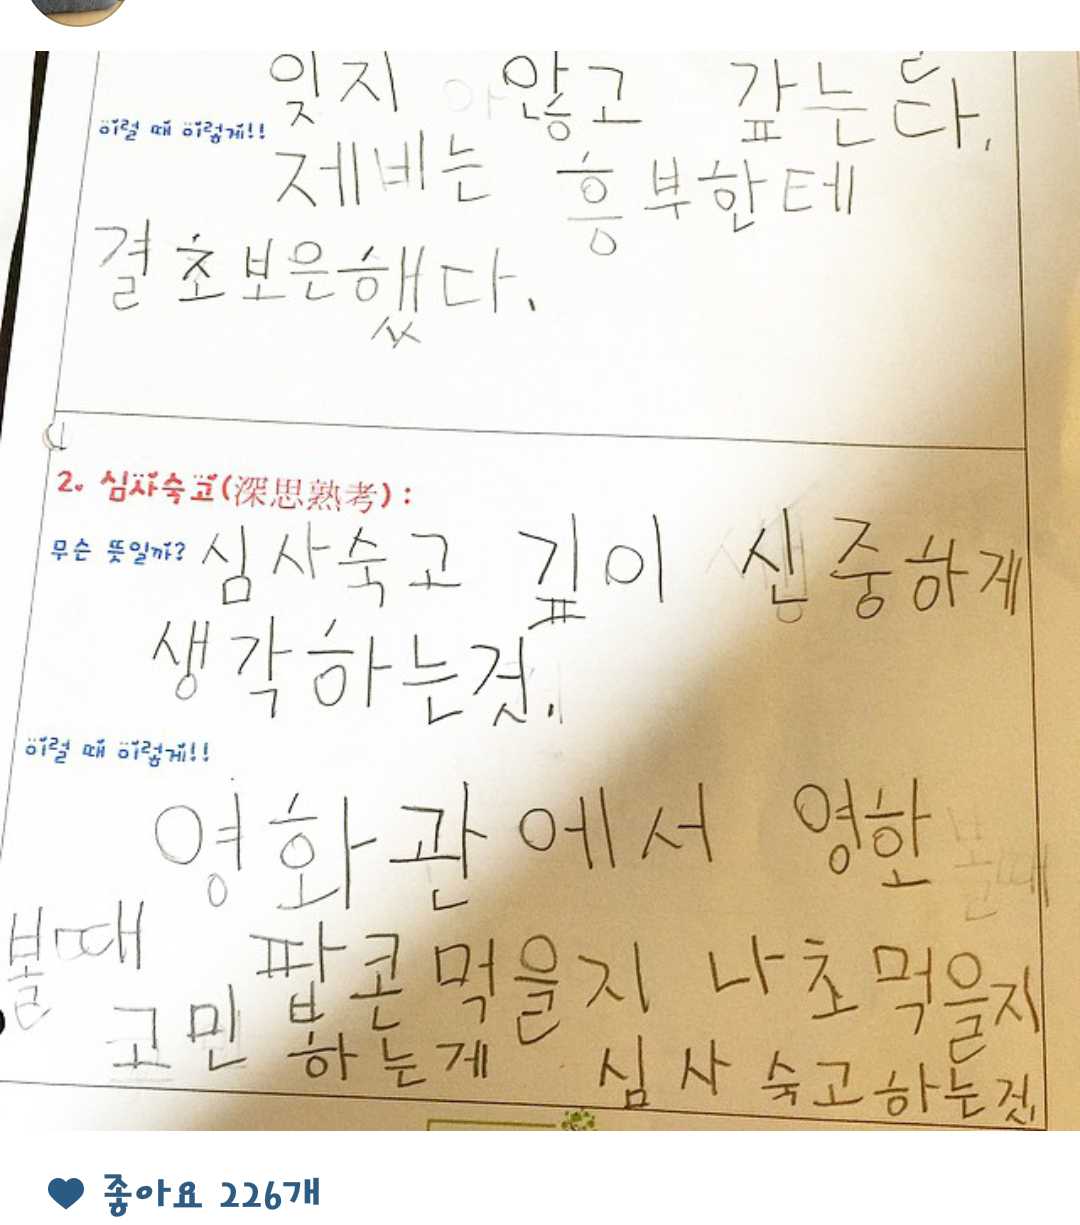 잊지 않고 갚는다.
이럴 때 이렇게!!
제비는 흥부한테
결초보은했다.
2. 심사숙고(深思熟考) :
무슨 뜻일까? 심사숙고 깊이 신중하게
생각하는것.
이럴 때 이렇게!!
영화관에서 영화
볼때 팝콘먹을지 나초먹을지
고민하는게 심사숙고하는것.
좋아요 226개